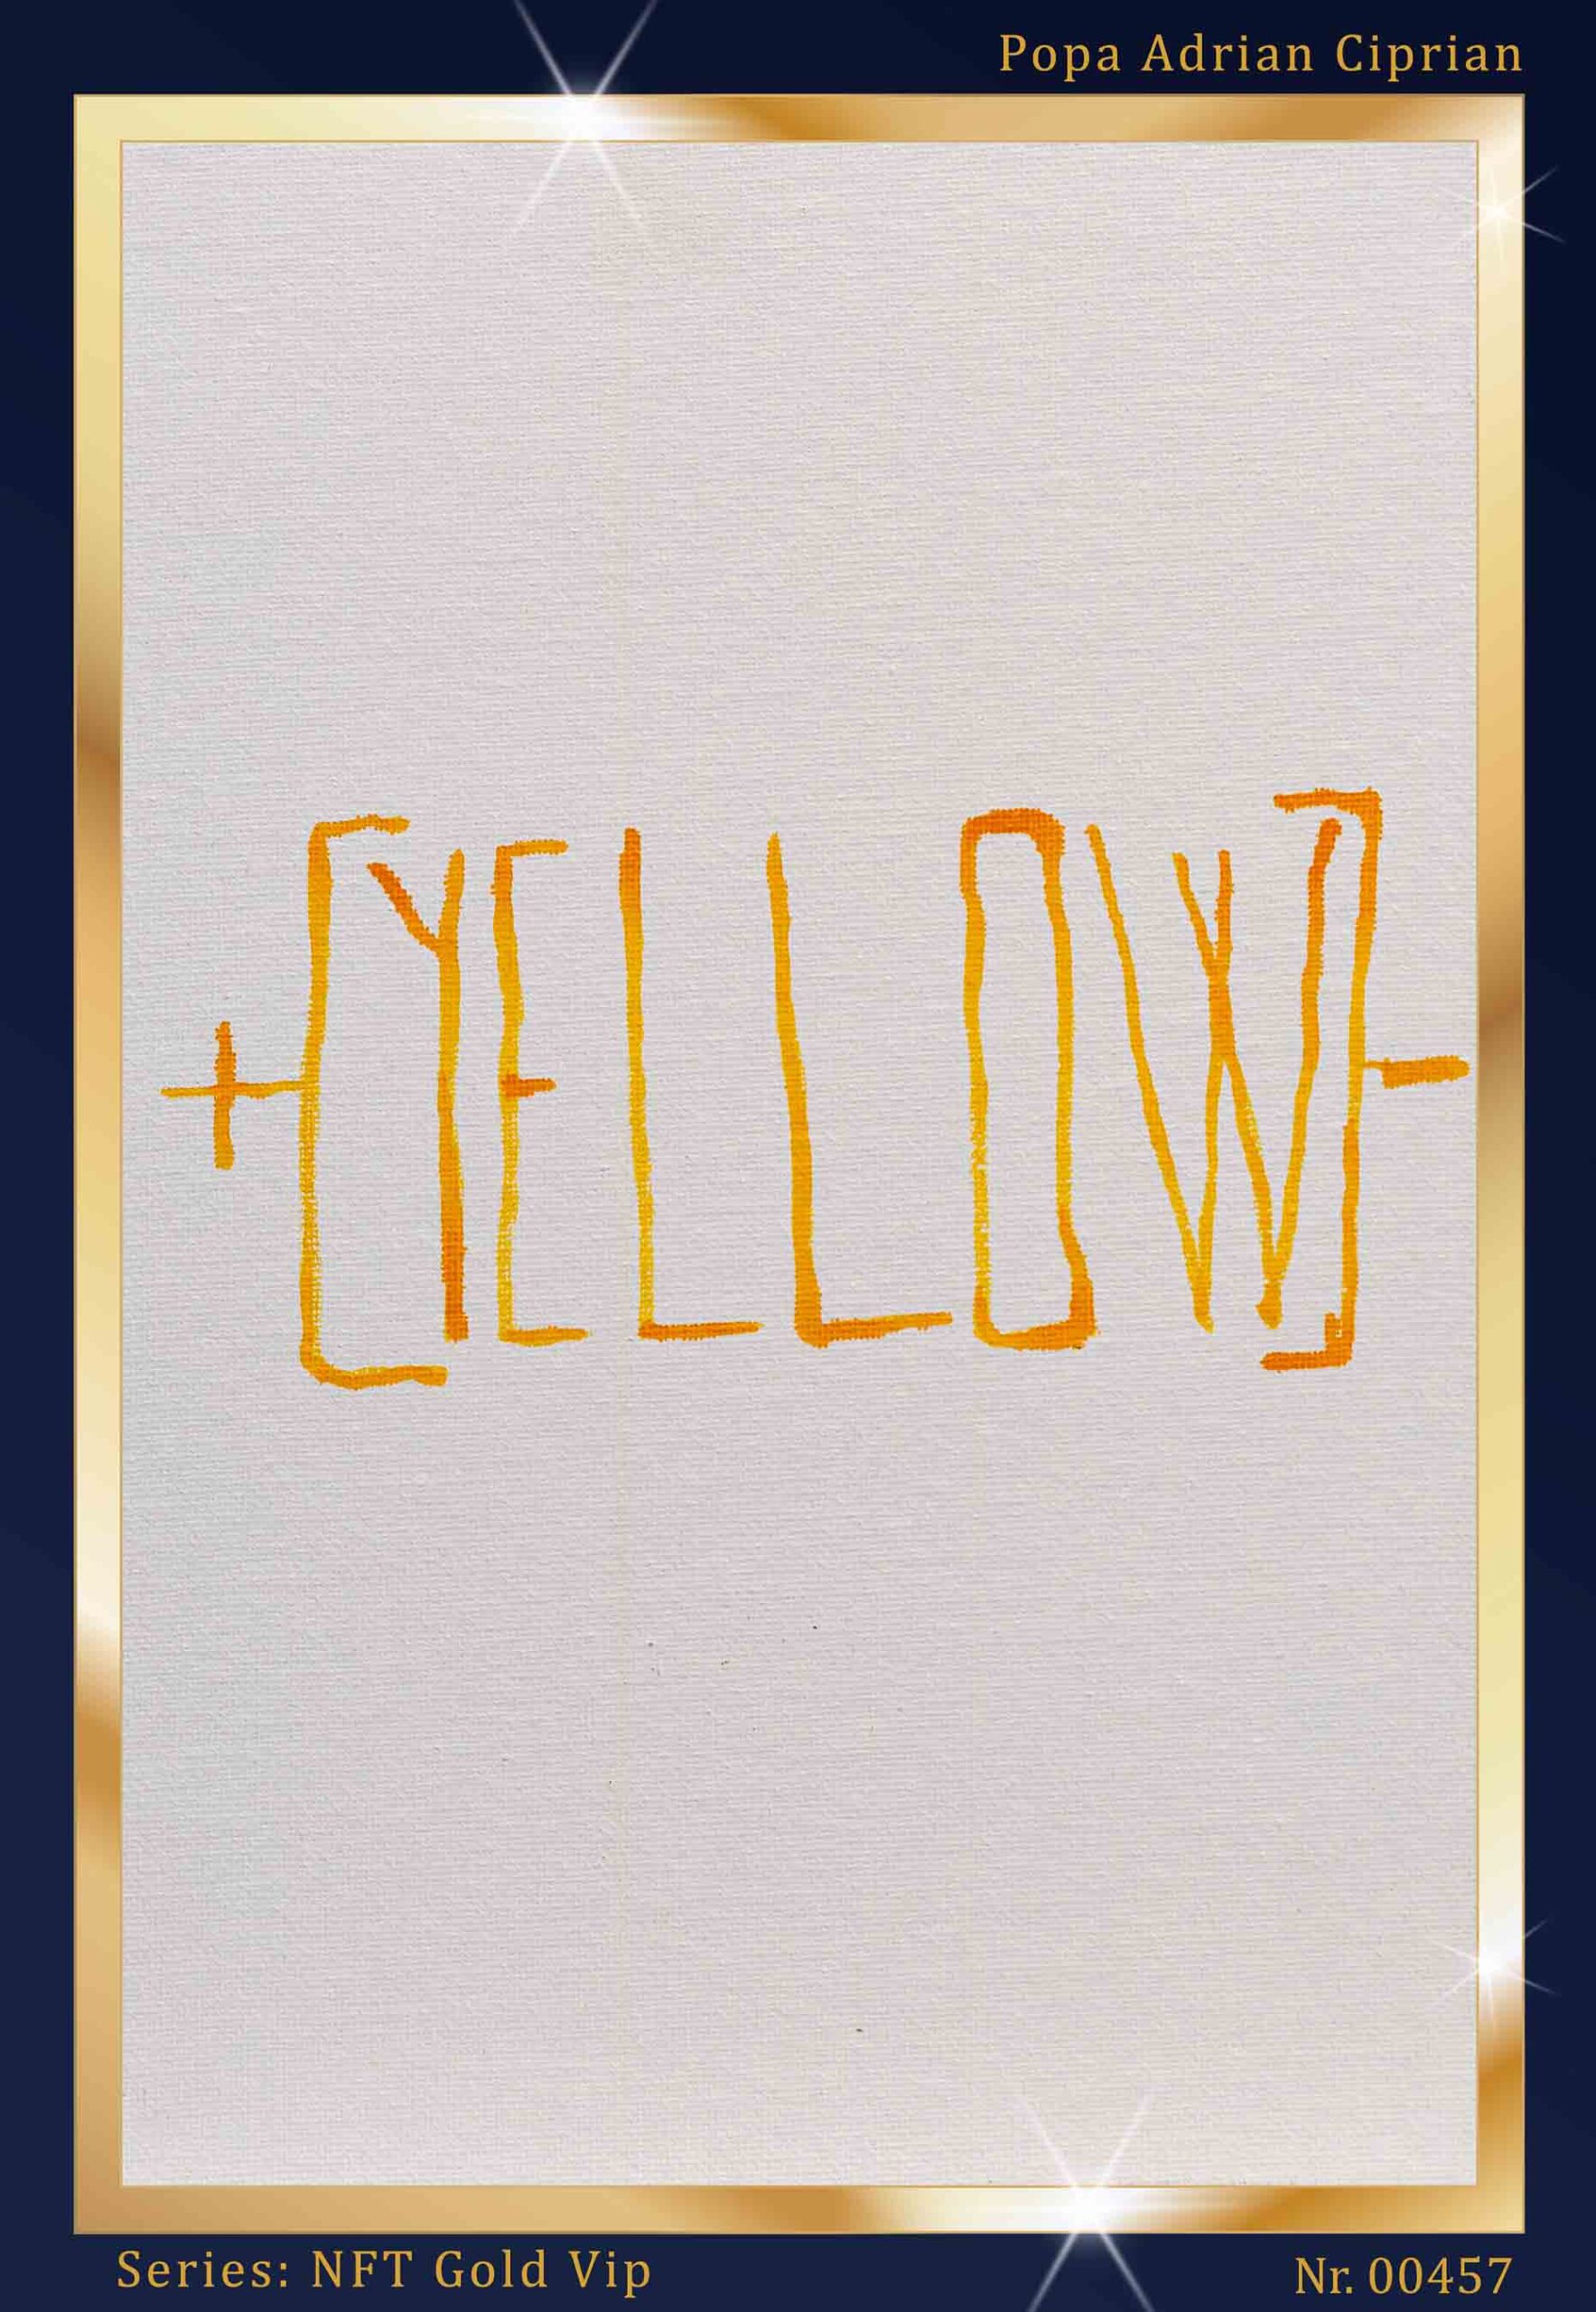 Popa Adrian Ciprian
+[YELLOW]-
Series: NFT Gold Vip
Nr. 00457